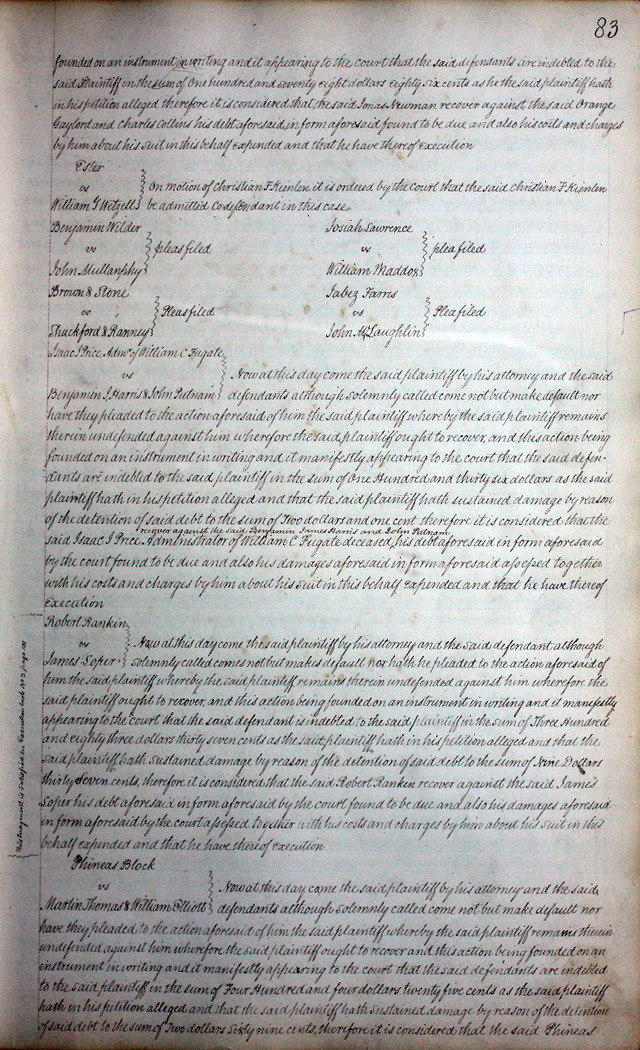 83
founded on an instrument in writing and it appearing to the court that the said defendants are indebted to the
said Plaintiff in the sum of One hundred and seventy eight dollars eighty six cents as he the said plaintiff hath
in his petition alleged therefore it is considered that the said Jonas Newman recover against the said Orange
Gaylord and Charles Collins his debt aforesaid in form aforesaid found to be due and also his costs and charges
by him about his suit in this behalf expended and that he have thereof execution
Esler
vs
On motion of Christian F Keinlen it is ordered by the court that the said Christian F Keinlen
William G Wetzell be admitted Codefendant in this case
Benjamin Wilder
vs pleas filed
John Mullanphy
Josiah Lawrence
vs plea filed
William Maddox
Brown & Stone
vs Pleas filed
Shackford & Ranney
Jabez Farris
vs Plea filed
John McLaughlin
Isaac J Price Admr of William C Fugate
vs Now at this day come the said plaintiff by his attorney and the said
Benjamin J Harris & John Putnam defendants although solemnly called come not but make default nor
have they pleaded to the action aforesaid of him the said plaintiff where by the said plaintiff remains
therein undefended against him wherefore the said plaintiff ought to recover, and this action being
founded on an instrument in writing and it manifestly appearing to the court that the said defen-
dants are indebted to the said plaintiff in the sum of One Hundred and thirty six dollars as the said
plaintiff hath in his petition alleged and that the said plaintiff hath sustained damage by reason
of the detention of said debt to the sum of Two dollars and one cent therefore it is considered that the
recover against the said Benjamin James Harris and John Putnam
said Isaac J Price Administrator of William C Fugate deceased, his debt aforesaid in form aforesaid
by the court found to be due and also his damages aforesaid in form aforesaid assessed together
with his costs and charges by him about his suit in this behalf expended and that he have thereof
execution
Robert Rankin
vs Now at this day come the said plaintiff by his attorney and the said defendant although
James Soper solemnly called comes not but makes default nor hath he pleaded to the action aforesaid of
him the said plaintiff whereby the said plaintiff remains therein undefended against him wherefore the
said plaintiff ought to recover, and this action being founded on an instrument in writing and it manifestly
appearing to the court that the said defendant is indebted to the said plaintiff in the sum of Three Hundred
and eighty three dollars thirty seven cents as the said plaintiff hath in his petition alleged and that the
said plaintiff hath sustained damage by reason of the detention of said debt to the sum of Nine Dollars
thirty Seven cents, therefore it is considered that the said Robert Rankin recover against the said James
Soper his debt aforesaid in form aforesaid by the court found to be due and also his damages aforesaid
in form aforesaid by the court assessed together with his costs and charges by him about his suit in this
behalf expended and that he have thereof execution
This judgment is satisfied see Execution book No 3 page
Phineas Block
vs Now at this day came the said plaintiff by his attorney and the said
Martin Thomas & William Elliott defendants although solemnly called come not but make default nor
have they pleaded to the action aforesaid of him the said plaintiff whereby the said plaintiff remains therein
undefended against him wherefore the said plaintiff ought to recover and this action being founded on an
instrument in writing and it manifestly appearing to the court that the said defendants are indebted
to the said plaintiff in the sum of Four Hundred and four dollars twenty five cents as the said plaintiff
hath in his petition alleged and that the said plaintiff hath sustained damage by reason of the detention
of said debt to the sum of Two dollars Sixty nine cents, therefore it is considered that the said Phineas